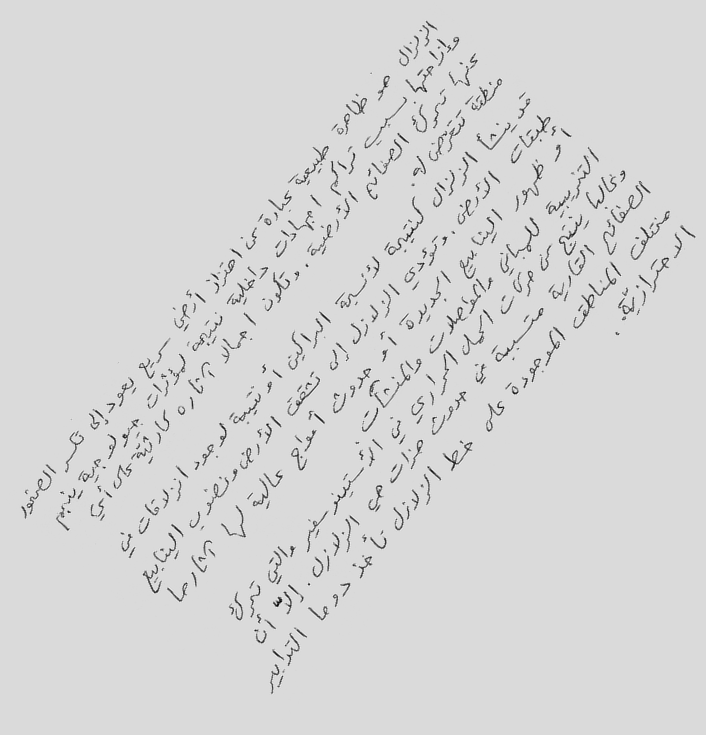 الزلزال هو ظاهرة طبيعية عبارة عن اهتزاز أرضي سريع يعود إلى تكسر الصخور
وإزاحتها بسبب تراكم اجهادات داخلية نتيجة لمؤثرات جيولوجية ينجم
عنها تحرك الصفائح الأرضية. وتكون اجمالا آثاره كارثيّة على أي
منطقة تتعرض له.
قد ينشأ الزلزال كنتيجة لأنشطة البراكين أو نتيجة لوجود انزلاقات في
طبقات الأرض. وتؤدي الزلازل إلى تشقق الأرض ونضوب الينابيع
أو ظهور الينابيع الجديدة أو حدوث أمواج عالية لها آثارها
التخريبية للمباني والمواصلات والمنشآت
وغالبا ينتج عن حركات الحمل الحراري في الأستينوسفير والتي تحرك
الصفائح القارية متسببة في حدوث هزات هي الزلازل. إلاّ أن
مختلف المناطق الموجودة على خط الزلازل تأخذ دوما التدابير
الاحترازيّة.